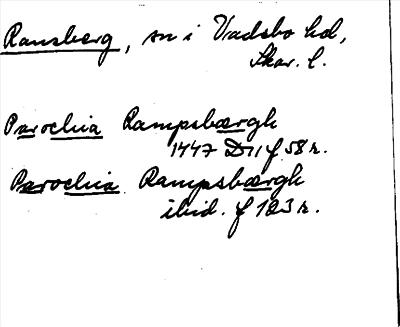 Ransberg, sn i Vadsbo hd,
Skar. l.
Parochia Rampsbærgh
1447 D11 f 58 r.
Parochia Rampsbærgh
ibid. f 123 r.